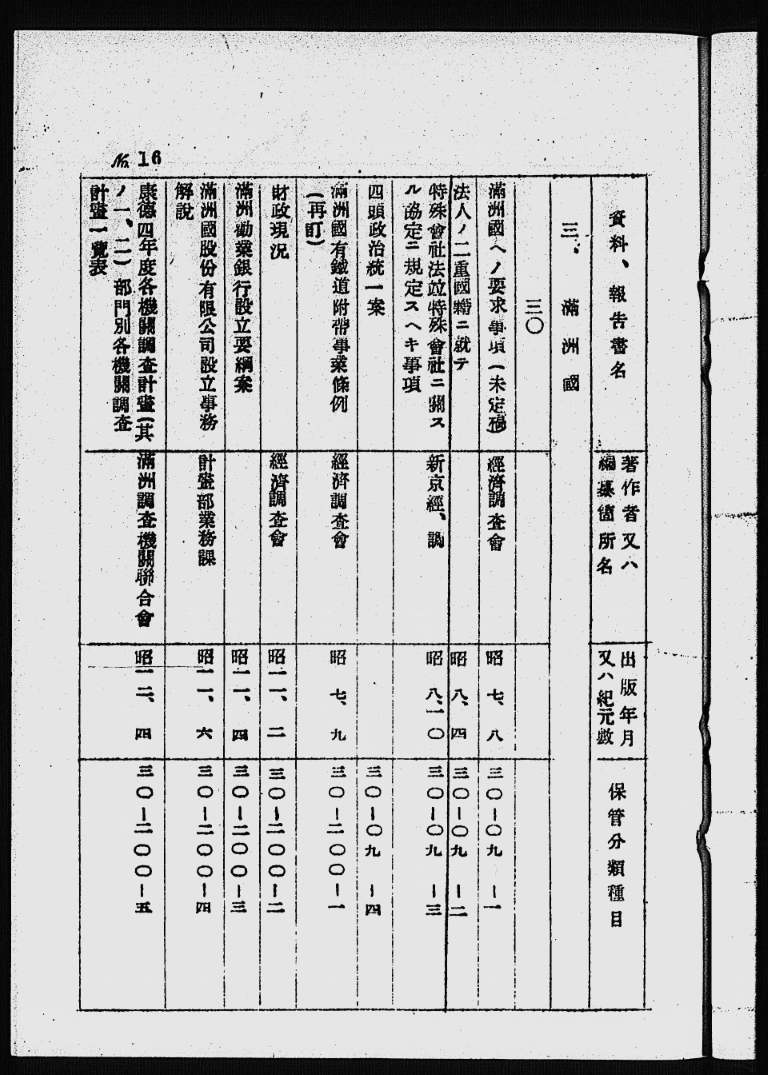 No. 16
資料、報告書名
著作者又ハ
編纂箇所名
出版年月
又ハ紀元數
保管分類種目
三、滿洲國
三〇
滿洲國ヘノ要求事項(未定稿)
經濟調查會
昭七、八
三〇—〇九—一
法人ノ二重國籍ニ就テ
昭八、四
三〇—〇九—二
特殊會社法竝特殊會社ニ關ス
ル協定ニ規定スヘキ事項
新京經、調
昭八、一〇
三〇—〇九—三
四頭政治統一案
三〇—〇九—四
滿洲國有鐵道附帶事業條例
(再訂)
經濟調查會
昭七、九
三〇—二〇〇—一
財政現況
經濟調查會
昭一一、二
三〇—二〇〇—二
滿洲勸業銀行設立要綱案
昭一一、四
三〇—二〇〇—三
滿洲國股份有限公司設立事務
解說
計畫部業務課
昭一一、六
三〇—二〇〇—四
康德四年度各機關調查計畫(其
ノ一、二)部門別各機關調查
計畫一覽表
滿洲調查機關聯合會
昭一二、四
三〇—二〇〇—五